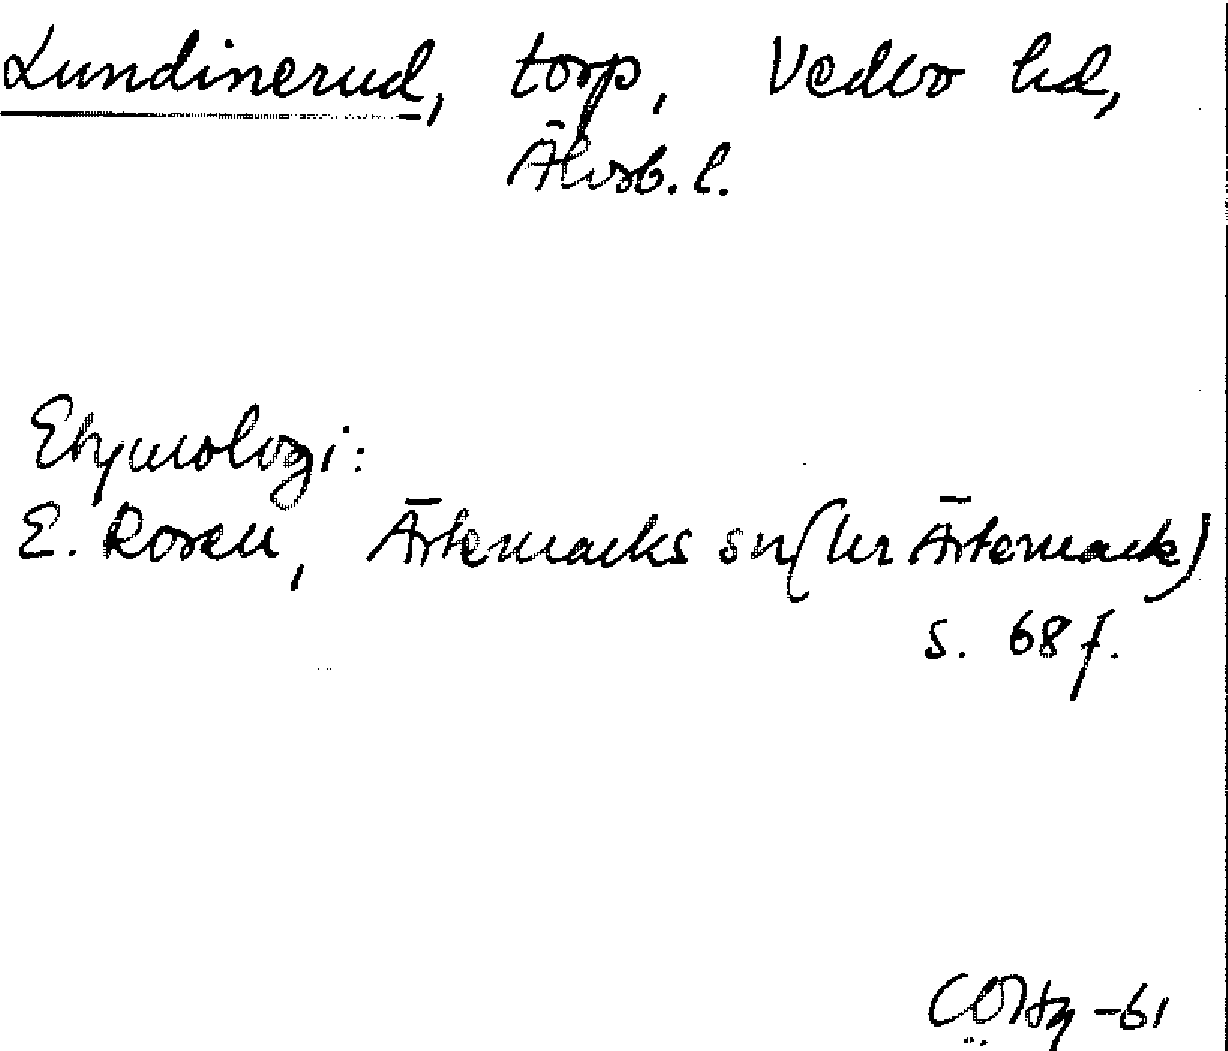 Lundinerud, torp, Vedbo hd,
Älvsb. l.
Etymologi:
E. Rosell, Ärtemarks sn (ur Ärtemark)
s. 68 f.
-61